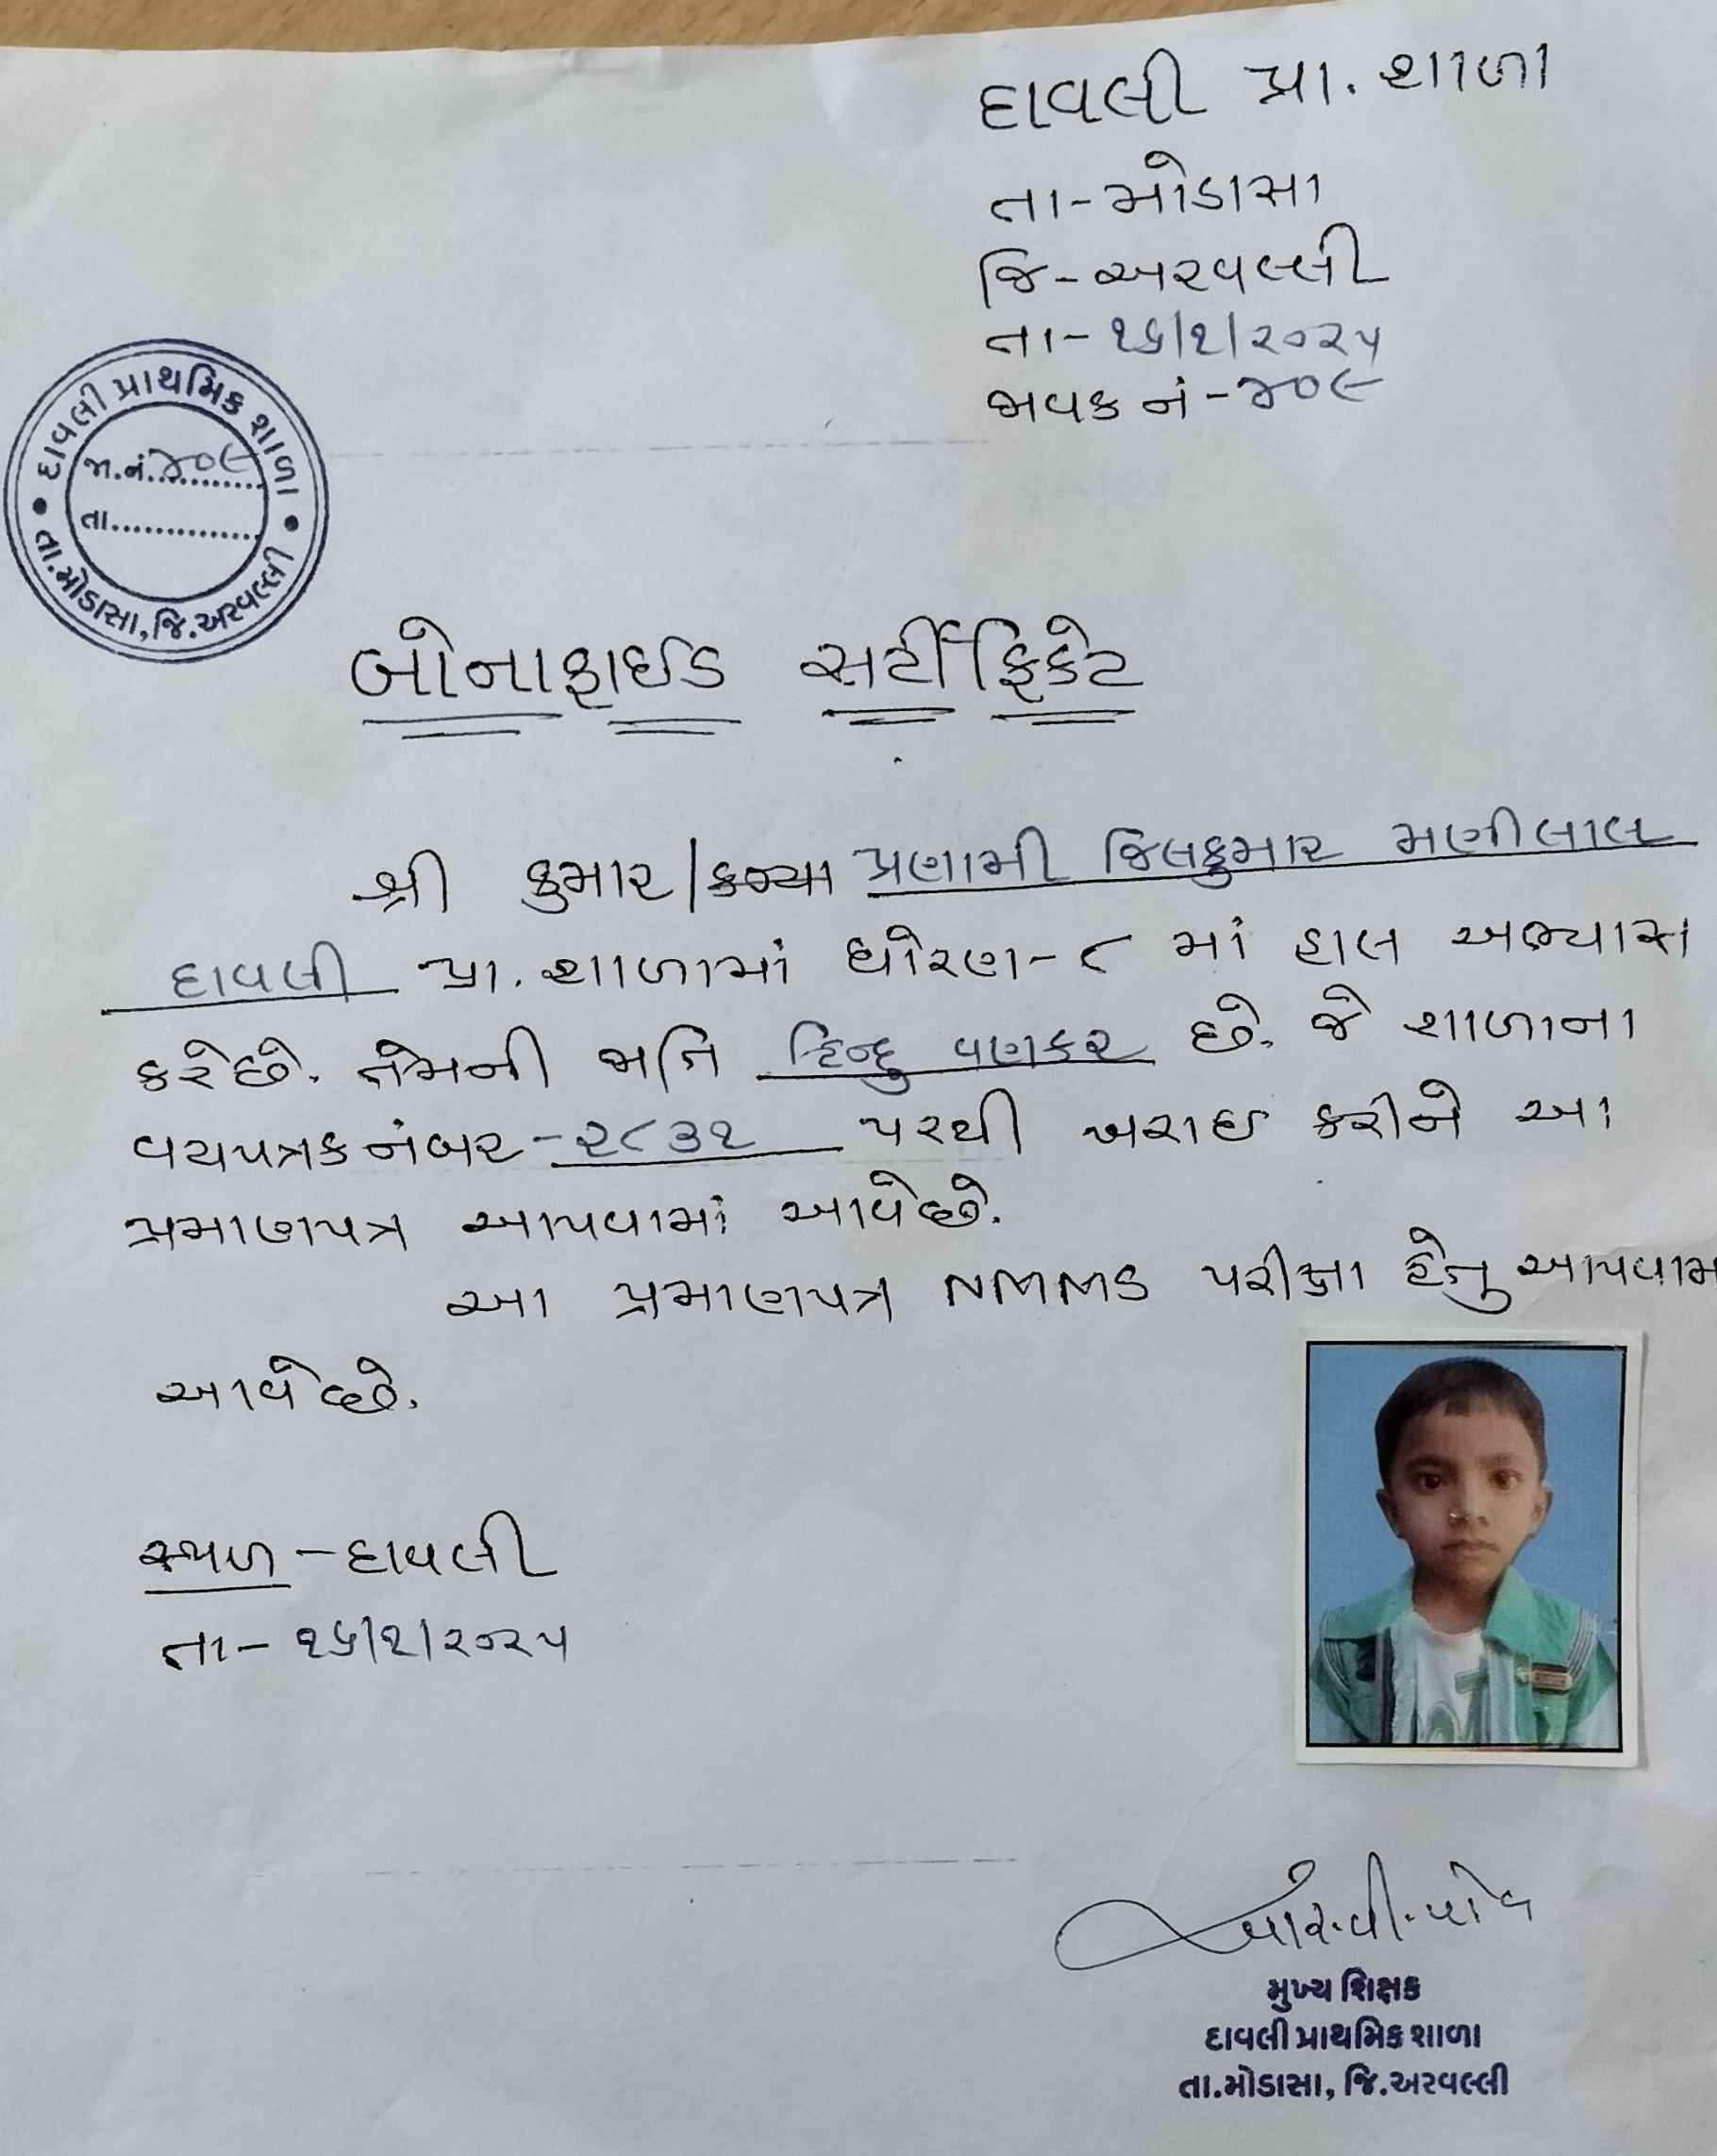 દાવલી પ્રા. શાળા
તા-મોડાસા
જિ-અરવલ્લી
તા-૧૬/૧/૨૦૨૫
જાવક નં-૪૦૯
દાવલી પ્રાથમિક શાળા
જા.નં.૪૦૯
તા..............
તા.મોડાસા, જિ.અરવલ્લી
બોનાફાઈડ સર્ટીફિકેટ
શ્રી કુમાર/કન્યા પ્રણામી જિલકુમાર મણીલાલ
દાવલી પ્રા. શાળામાં ધોરણ-૮ માં હાલ અભ્યાસ
કરે છે. તેમની જાતિ હિન્દુ વણકર છે. જે શાળાના
વયપત્રક નંબર-૨૮૩૧ પરથી ખરાઇ કરીને આ
પ્રમાણપત્ર આપવામાં આવે છે.
આ પ્રમાણપત્ર NMMS પરીક્ષા હેતુ આપવામ
આવે છે.
સ્થળ - દાવલી
તા- ૧૬/૧/૨૦૨૫
મુખ્ય શિક્ષક
દાવલી પ્રાથમિક શાળા
તા.મોડાસા, જિ.અરવલ્લી